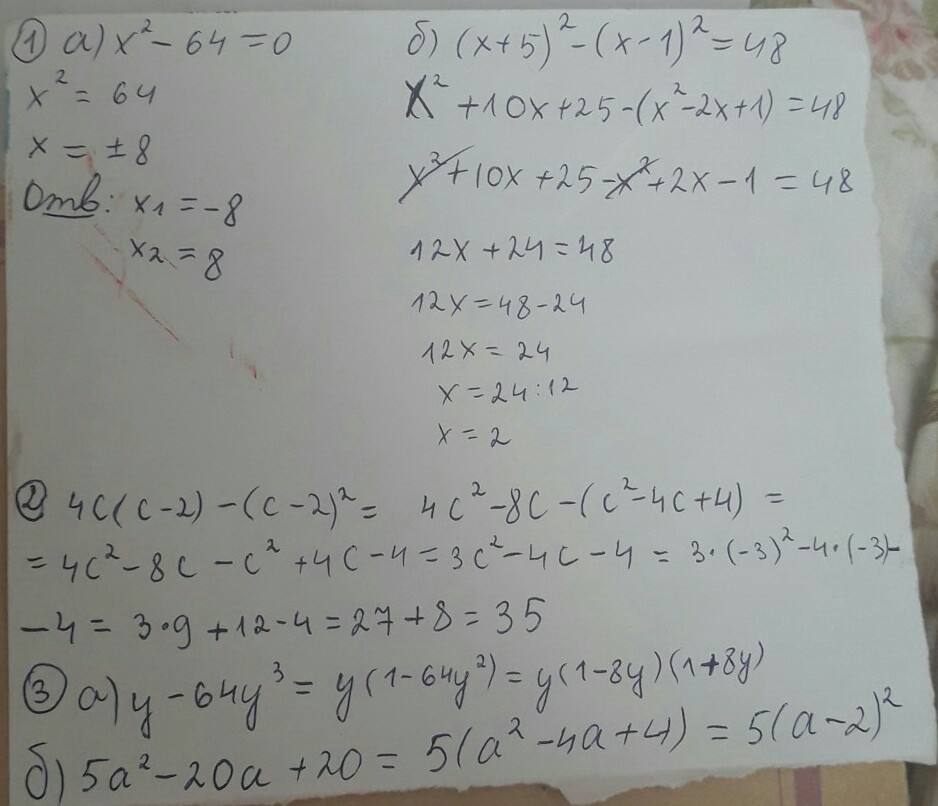 ① а) x² - 64 = 0
x² = 64
x = ±8
Отв: x₁ = -8
x₂ = 8
б) (x+5)² - (x-1)² = 48
x² + 10x + 25 - (x² - 2x + 1) = 48
x² + 10x + 25 - x² + 2x - 1 = 48
12x + 24 = 48
12x = 48 - 24
12x = 24
x = 24:12
x = 2
② 4c(c-2) - (c-2)² = 4c² - 8c - (c² - 4c + 4) =
= 4c² - 8c - c² + 4c - 4 = 3c² - 4c - 4 = 3·(-3)² - 4·(-3) -
- 4 = 3·9 + 12 - 4 = 27 + 8 = 35
③ а) y - 64y³ = y(1 - 64y²) = y(1 - 8y)(1 + 8y)
б) 5a² - 20a + 20 = 5(a² - 4a + 4) = 5(a - 2)²